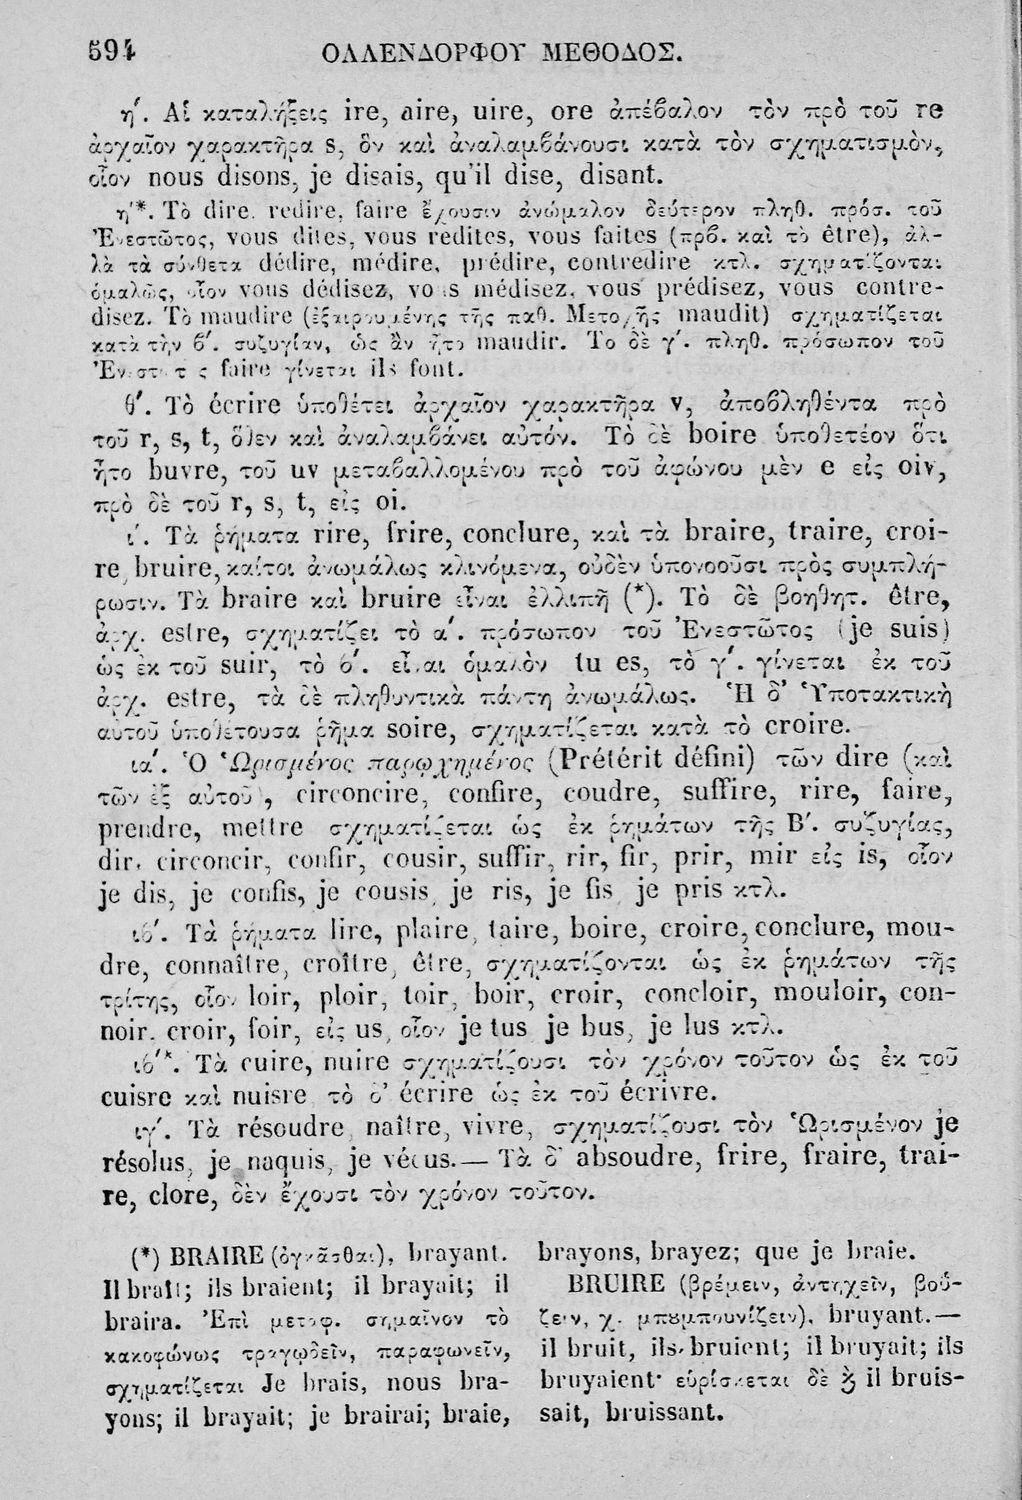 594 ΟΛΛΕΝΔΟΡΦΟΥ ΜΕΘΟΔΟΣ.
η΄. Αἱ καταλήξεις ire, aire, uire, ore ἀπέβαλον τὸν πρὸ τοῦ re
ἀρχαῖον χαρακτῆρα s, ὃν καὶ ἀναλαμβάνουσι κατὰ τὸν σχηματισμὸν,
οἷον nous disons, je disais, qu'il dise, disant.
η΄*. Τὸ dire, redire, faire ἔχουσιν ἀνώμαλον δεύτερον πληθ. πρόσ. τοῦ
Ἐνεστῶτος, vous dites, vous redites, vous faites (πρβ. καὶ τὸ être), ἀλ-
λὰ τὰ σύνθετα dédire, médire, prédire, contredire κτλ. σχηματίζονται
ὁμαλῶς, οἷον vous dédisez, vous médisez, vous prédisez, vous contre-
disez. Τὸ maudire (ἐξαιρουμένης τῆς παθ. Μετοχῆς maudit) σχηματίζεται
κατὰ τὴν β΄. συζυγίαν, ὡς ἂν ἦτο maudir. Το δὲ γ΄. πληθ. πρόσωπον τοῦ
Ἐνεστῶτος faire γίνεται ils font.
θ΄. Τὸ écrire ὑποθέτει ἀρχαῖον χαρακτῆρα v, ἀποβληθέντα πρὸ
τοῦ r, s, t, ὅθεν καὶ ἀναλαμβάνει αὐτόν. Τὸ δὲ boire ὑποθετέον ὅτι
ἦτο buvre, τοῦ uv μεταβαλλομένου πρὸ τοῦ ἀφώνου μὲν e εἰς oiv,
πρὸ δὲ τοῦ r, s, t, εἰς oi.
ι΄. Τὰ ῥήματα rire, frire, conclure, καὶ τὰ braire, traire, croi-
re, bruire, καίτοι ἀνωμάλως κλινόμενα, οὐδὲν ὑπονοοῦσι πρὸς συμπλή-
ρωσιν. Τὰ braire καὶ bruire εἶναι ἐλλιπῆ (*). Τὸ δὲ βοηθητ. être,
ἀρχ. estre, σχηματίζει τὸ α΄. πρόσωπον τοῦ Ἐνεστῶτος (je suis)
ὡς ἐκ τοῦ suir, τὸ β΄. εἶναι ὁμαλὸν tu es, τὸ γ΄. γίνεται ἐκ τοῦ
ἀρχ. estre, τὰ δὲ πληθυντικὰ πάντη ἀνωμάλως. Ἡ δ' Ὑποτακτικὴ
αὐτοῦ ὑποθέτουσα ῥῆμα soire, σχηματίζεται κατὰ τὸ croire.
ια΄. Ὁ Ὡρισμένος παρῳχημένος (Prétérit défini) τῶν dire (καὶ
τῶν ἐξ αὐτοῦ), circoncire, confire, coudre, suffire, rire, faire,
prendre, mettre σχηματίζεται ὡς ἐκ ῥημάτων τῆς Β΄. συζυγίας,
dir, circoncir, confir, cousir, suffir, rir, fir, prir, mir εἰς is, οἷον
je dis, je confis, je cousis, je ris, je fis, je pris κτλ.
ιβ΄. Τὰ ῥήματα lire, plaire, taire, boire, croire, conclure, mou-
dre, connaître, croître, être, σχηματίζονται ὡς ἐκ ῥημάτων τῆς
τρίτης, οἷον loir, ploir, toir, boir, croir, concloir, mouloir, con-
noir, croir, foir, εἰς us, οἷον je tus, je bus, je lus κτλ.
ιβ΄*. Τὰ cuire, nuire σχηματίζουσι τὸν χρόνον τοῦτον ὡς ἐκ τοῦ
cuisre καὶ nuisre, τὸ δ' écrire ὡς ἐκ τοῦ écrivre.
ιγ΄. Τὰ résoudre, naître, vivre, σχηματίζουσι τὸν Ὡρισμένον je
résolus, je naquis, je vécus.— Τὰ δ' absoudre, frire, fraire, trai-
re, clore, δὲν ἔχουσι τὸν χρόνον τοῦτον.
(*) BRAIRE (ὀγκᾶσθαι), brayant.
Il brait; ils braient; il brayait; il
braira. Ἐπὶ μεταφ. σημαῖνον τὸ
κακοφώνως τραγῳδεῖν, παραφωνεῖν,
σχηματίζεται Je brais, nous bra-
yons; il brayait; je brairai; braie,
brayons, brayez; que je braie.
BRUIRE (βρέμειν, ἀντηχεῖν, βοΰ-
ζειν, χ. μπȣμπουνίζειν), bruyant.—
il bruit, ils bruient; il bruyait; ils
bruyaient· εὑρίσκεται δὲ ϗ il bruis-
sait, bruissant.